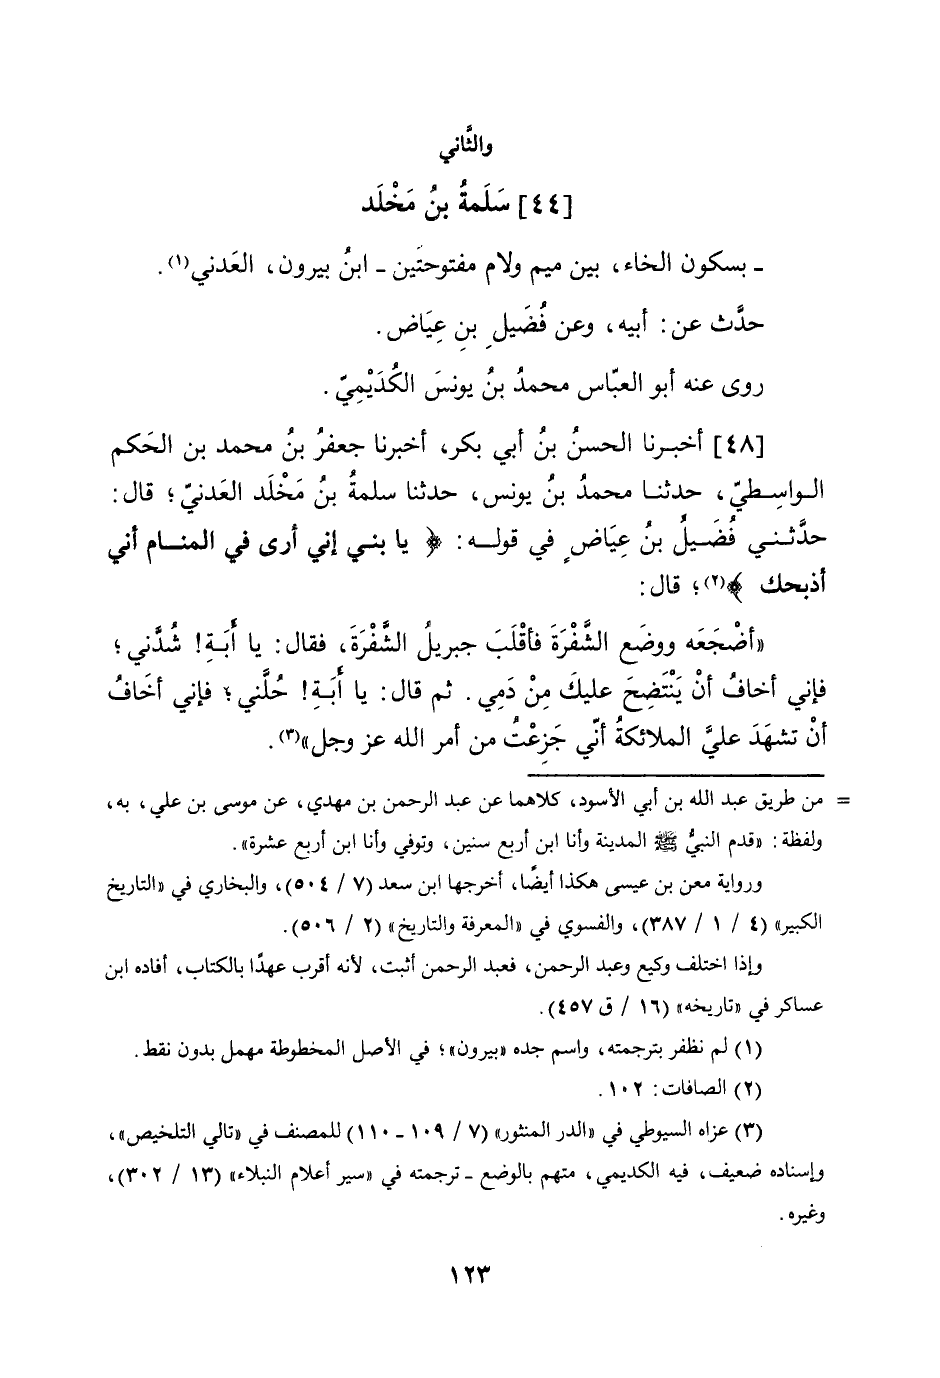 والثَّاني
[٤٤] سَلَمةُ بنُ مَخْلَد
ـ بسكون الخاء، بين ميم ولام مفتوحتَين ـ ابنُ بيرون، العَدني(١).
حدَّث عن: أبيه، وعن فُضَيلِ بنِ عِيَاض.
روى عنه أبو العبّاس محمدُ بنُ يونسَ الكُدَيْمِيّ.
[٤٨] أخبرنا الحسنُ بنُ أبي بكر، أخبرنا جعفرُ بنُ محمد بن الحَكم
الواسِطيّ، حدثنا محمدُ بنُ يونس، حدثنا سلمةُ بنُ مَخْلَد العَدنيّ؛ قال:
حدَّثني فُضَيلُ بنُ عِيَاضٍ في قوله: ﴿ يا بني إني أرى في المنام أني
أذبحك ﴾(٢)؛ قال:
«أضْجَعَه ووضَع الشَّفْرَة فأقْلَبَ جبريلُ الشَّفْرَةَ، فقال: يا أَبَةِ! شُدَّني؛
فإني أخافُ أنْ يَنْتَضِحَ عليكَ مِنْ دَمِي. ثم قال: يا أَبَةِ! حُلَّني؛ فإني أخَافُ
أنْ تشهَدَ عليَّ الملائكةُ أنّي جَزِعْتُ من أمر الله عز وجل»(٣).
= من طريق عبد الله بن أبي الأسود، كلاهما عن عبد الرحمن بن مهدي، عن موسى بن علي، به،
ولفظة: «قدم النبيُّ ﷺ المدينة وأنا ابن أربع سنين، وتوفي وأنا ابن أربع عشرة».
ورواية معن بن عيسى هكذا أيضًا، أخرجها ابن سعد (٧ / ٥٠٤)، والبخاري في «التاريخ
الكبير» (٤ / ١ / ٣٨٧)، والفسوي في «المعرفة والتاريخ» (٢ / ٥٠٦).
وإذا اختلف وكيع وعبد الرحمن، فعبد الرحمن أثبت، لأنه أقرب عهدًا بالكتاب، أفاده ابن
عساكر في «تاريخه» (١٦ / ق ٤٥٧).
(١) لم نظفر بترجمته، واسم جده «بيرون»؛ في الأصل المخطوطة مهمل بدون نقط.
(٢) الصافات: ١٠٢.
(٣) عزاه السيوطي في «الدر المنثور» (٧ / ١٠٩ ـ ١١٠) للمصنف في «تالي التلخيص»،
وإسناده ضعيف، فيه الكديمي، متهم بالوضع ـ ترجمته في «سير أعلام النبلاء» (١٣ / ٣٠٢)،
وغيره.
١٢٣